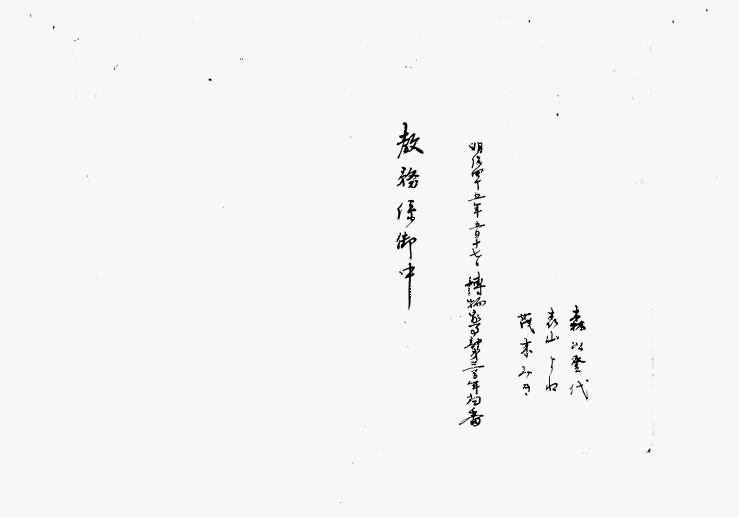 森以登代
表山よね
茂木みき
明治四十五年五月十七日博物学部第三学年相番
教務係御中